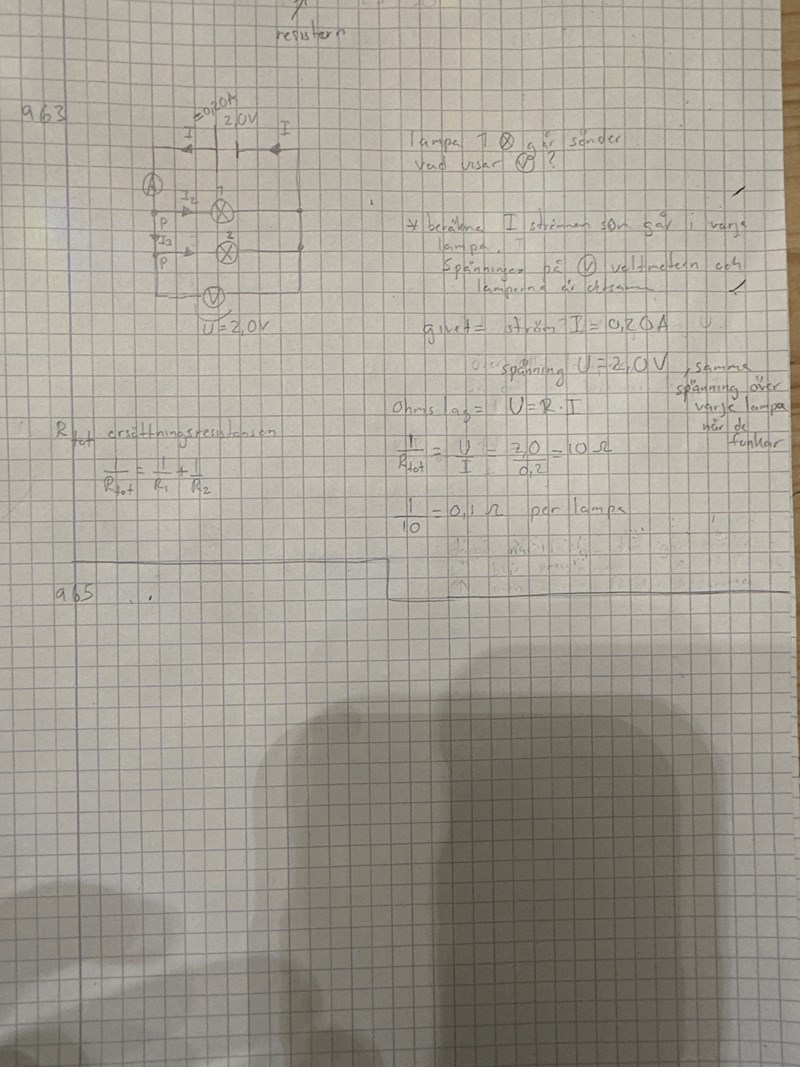 resistorn
963
=0,20A
2,0V
I
I
A
I2
1
P
I3
2
P
V
U=2,0V
lampa 1 ⊗ går sönder
vad visar V ?
* beräkna I strömmen som går i varje
lampa.
Spänningen på V voltmetern och
lamporna är
givet= ström I=0,20A
spänning U=2,0V, samma
spänning över
varje lampa
när de
funkar
Ohms lag= U=R·I
1/Rtot = U/I = 2,0/0,2 = 10 Ω
1/10 = 0,1 Ω per lampa
Rtot ersättningsresistansen
1/Rtot = 1/R1 + 1/R2
965